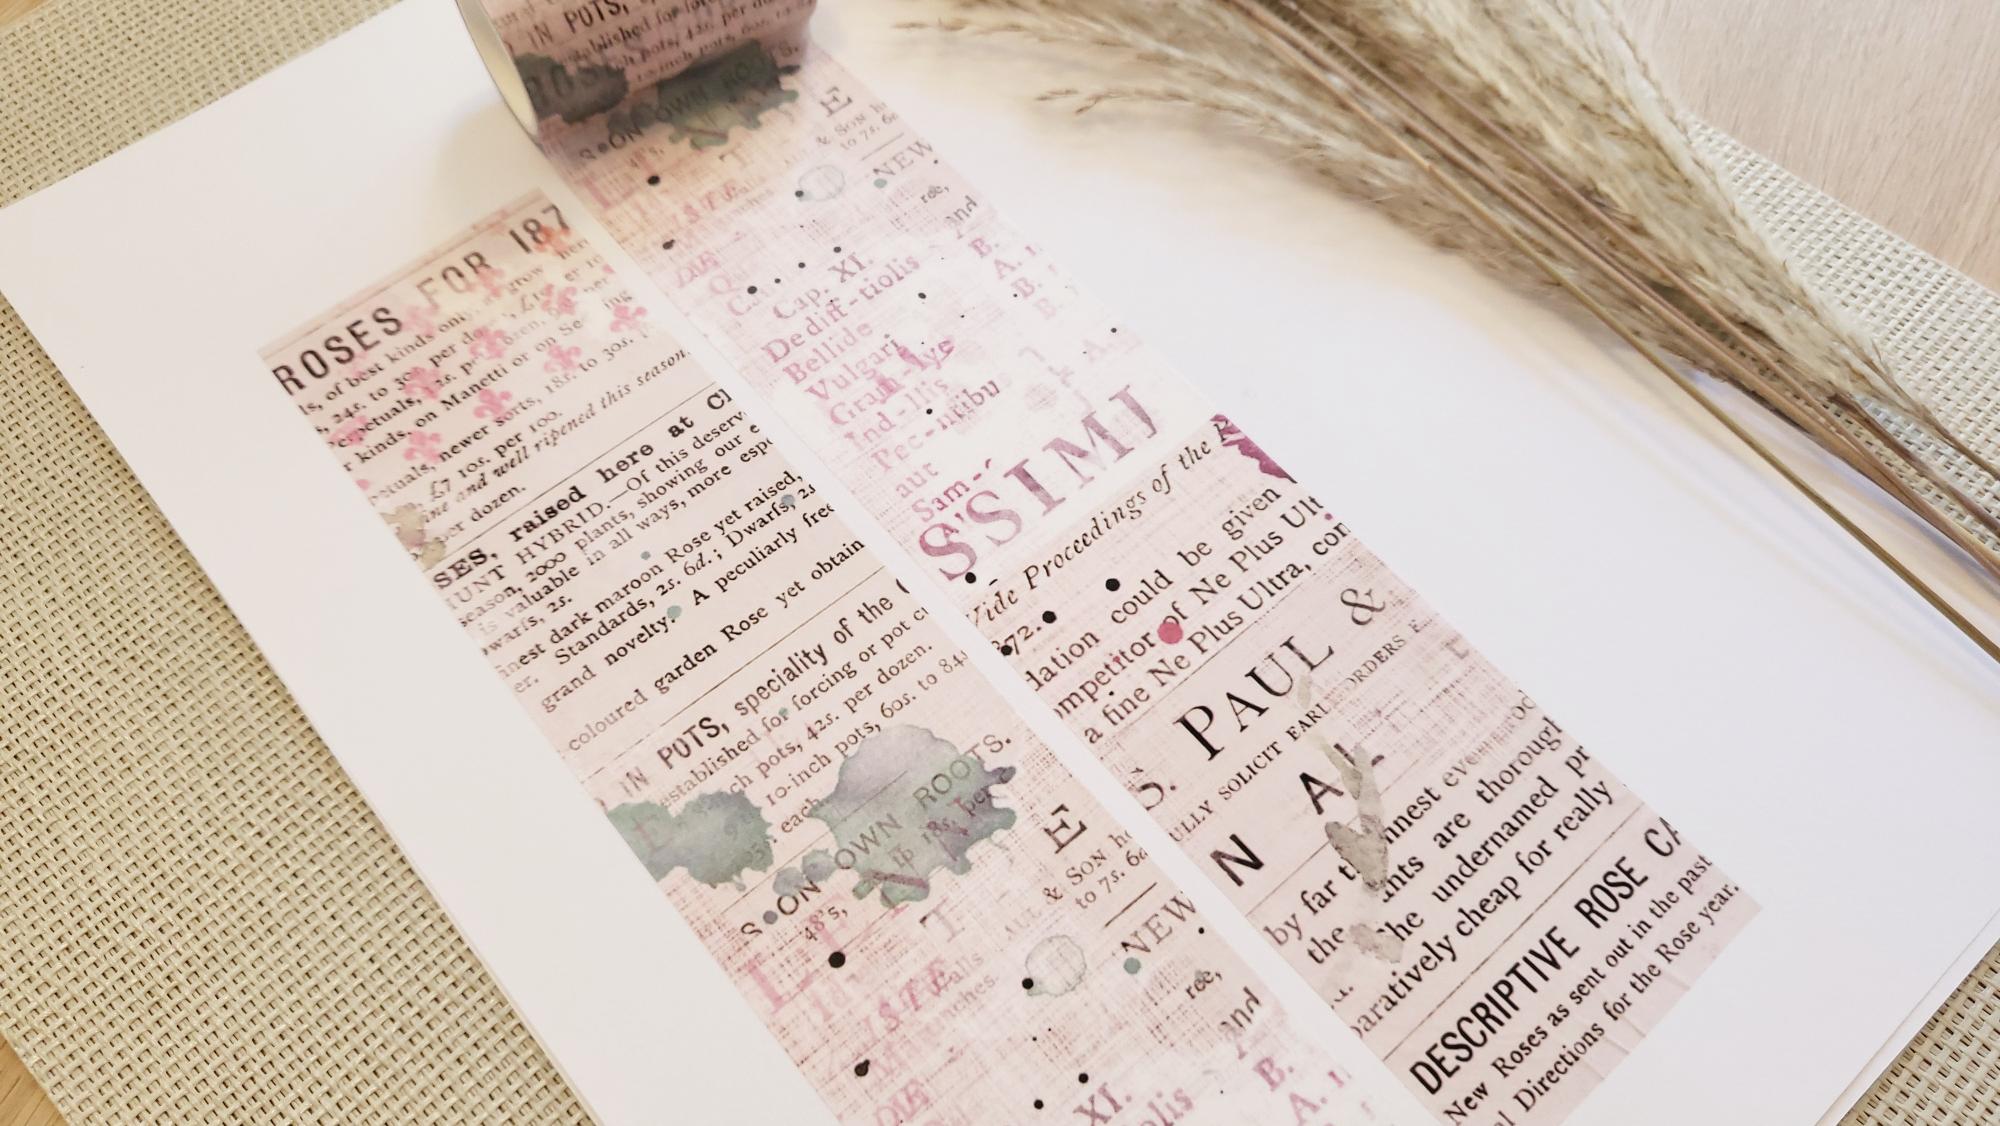 ROSES FOR 187
of best kinds only, grow
24s. to 30s. per
erpetuals, 2s. per dozen,
r kinds, on Manetti or on Se ing
etuals, newer sorts, 18s. to 30s.
£7 10s. per 100.
ine and well ripened this season
per dozen.
SES, raised here at Cl
UNT HYBRID.—Of this deserv
season, 2000 plants, showing our e
is valuable in all ways, more espe
warfs, 2s.
inest dark maroon Rose yet raised,
er. Standards, 2s. 6d.; Dwarfs, 2s
grand novelty. A peculiarly free
coloured garden Rose yet obtain
IN POTS, speciality of the
established for forcing or pot c
ch pots, 42s. per dozen.
10-inch pots, 60s. to 84s
each.
S ON OWN ROOTS.
48's, 18s. per
E
T
& SON h
to 7s. 6d
NEW
ree,
and
XI.
B.
A.
IN POTS,
established for forc
ch pots, 42s. per do
10-inch pots, 60s.
S ON OWN ROO
48's,
E
T
& SON h
to 7s. 6d
NEW
ree,
and
Cap. XI.
Dediff-tiolis
Bellide
Vulgari
Ind-llis
Pec-ntribu
aut
Sam-
B.
A.
B.
B.
A.
S'SIMJ
Vide Proceedings of the R
872.
dation could be given
ompetitor of Ne Plus Ult
a fine Ne Plus Ultra, con
S. PAUL &
ULLY SOLICIT EARL ORDERS
N A L
by far t nnest eve
the nts are thorough
the undernamed pr
paratively cheap for really
DESCRIPTIVE ROSE CA
New Roses as sent out in the past
l Directions for the Rose year.